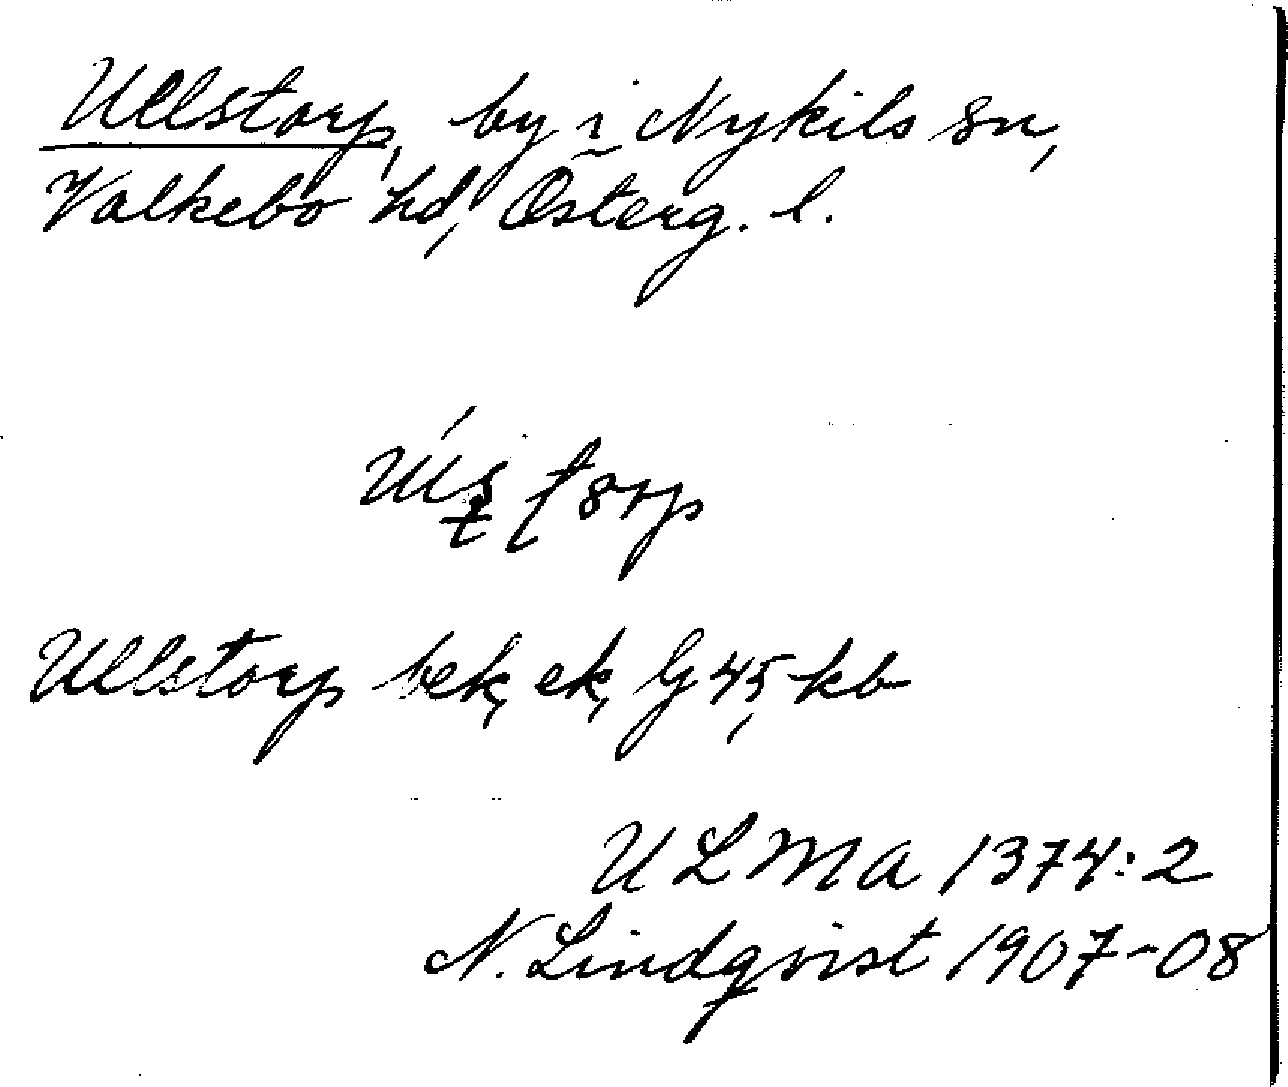 Ullstorp, by i Nykils sn,
Valkebo hd, Österg. l.
Ullstorp bek, ek, G 45, kb
ULMA 1374:2
N. Lindqvist 1907-08